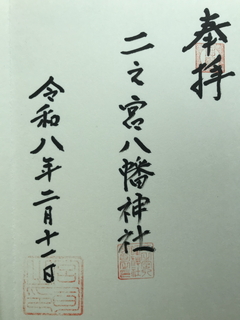 奉拝
二之宮八幡神社
令和八年二月十一日